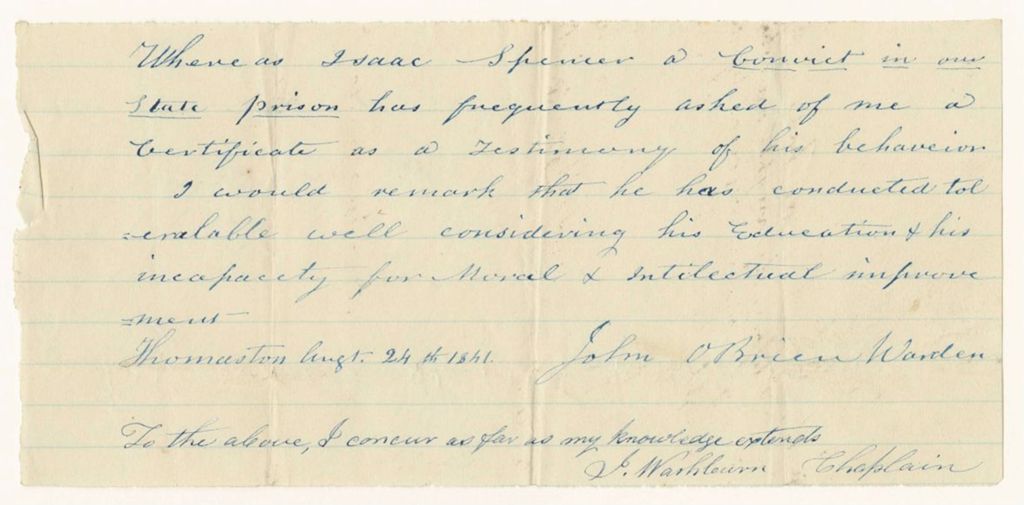 Where as Isaac Spencer a Convict in our
State prison has frequently asked of me a
Certificate as a Testimony of his behaveior
I would remark that he has conducted tol
=eralable well considering his Education & his
incapacety for Moral & Intilectual improve
=ment
Thomaston Augt. 24th 1841. John O Brien Warden
To the above, I concur as far as my knowledge extends
J. Washburn Chaplain